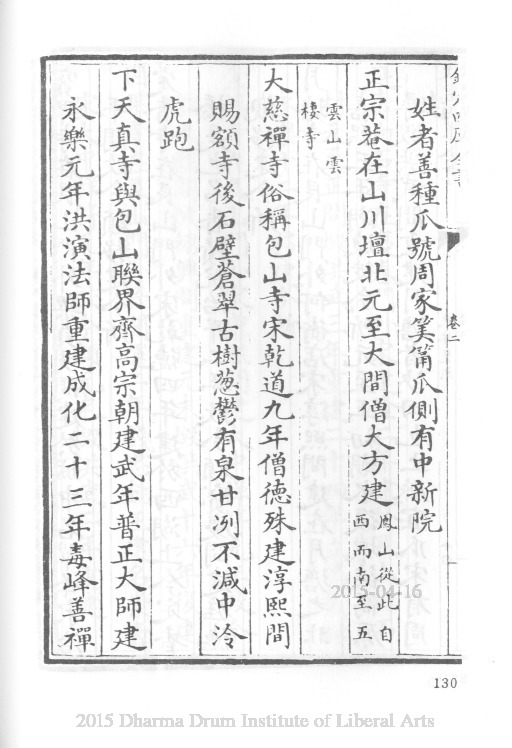 姓者善種瓜號周家筼筩瓜側有中新院
正宗菴在山川壇北元至大間僧大方建鳳山從此自
西而南至五
雲山雲
棲寺
大慈禪寺俗稱包山寺宋乾道九年僧德殊建淳熙間
賜額寺後石壁蒼翠古樹蔥鬱有泉甘冽不減中泠
虎跑
下天真寺與包山聯界齊高宗朝建武年普正大師建
永樂元年洪演法師重建成化二十三年毒峰善禪
卷二
130
2015-04-16
2015 Dharma Drum Institute of Liberal Arts